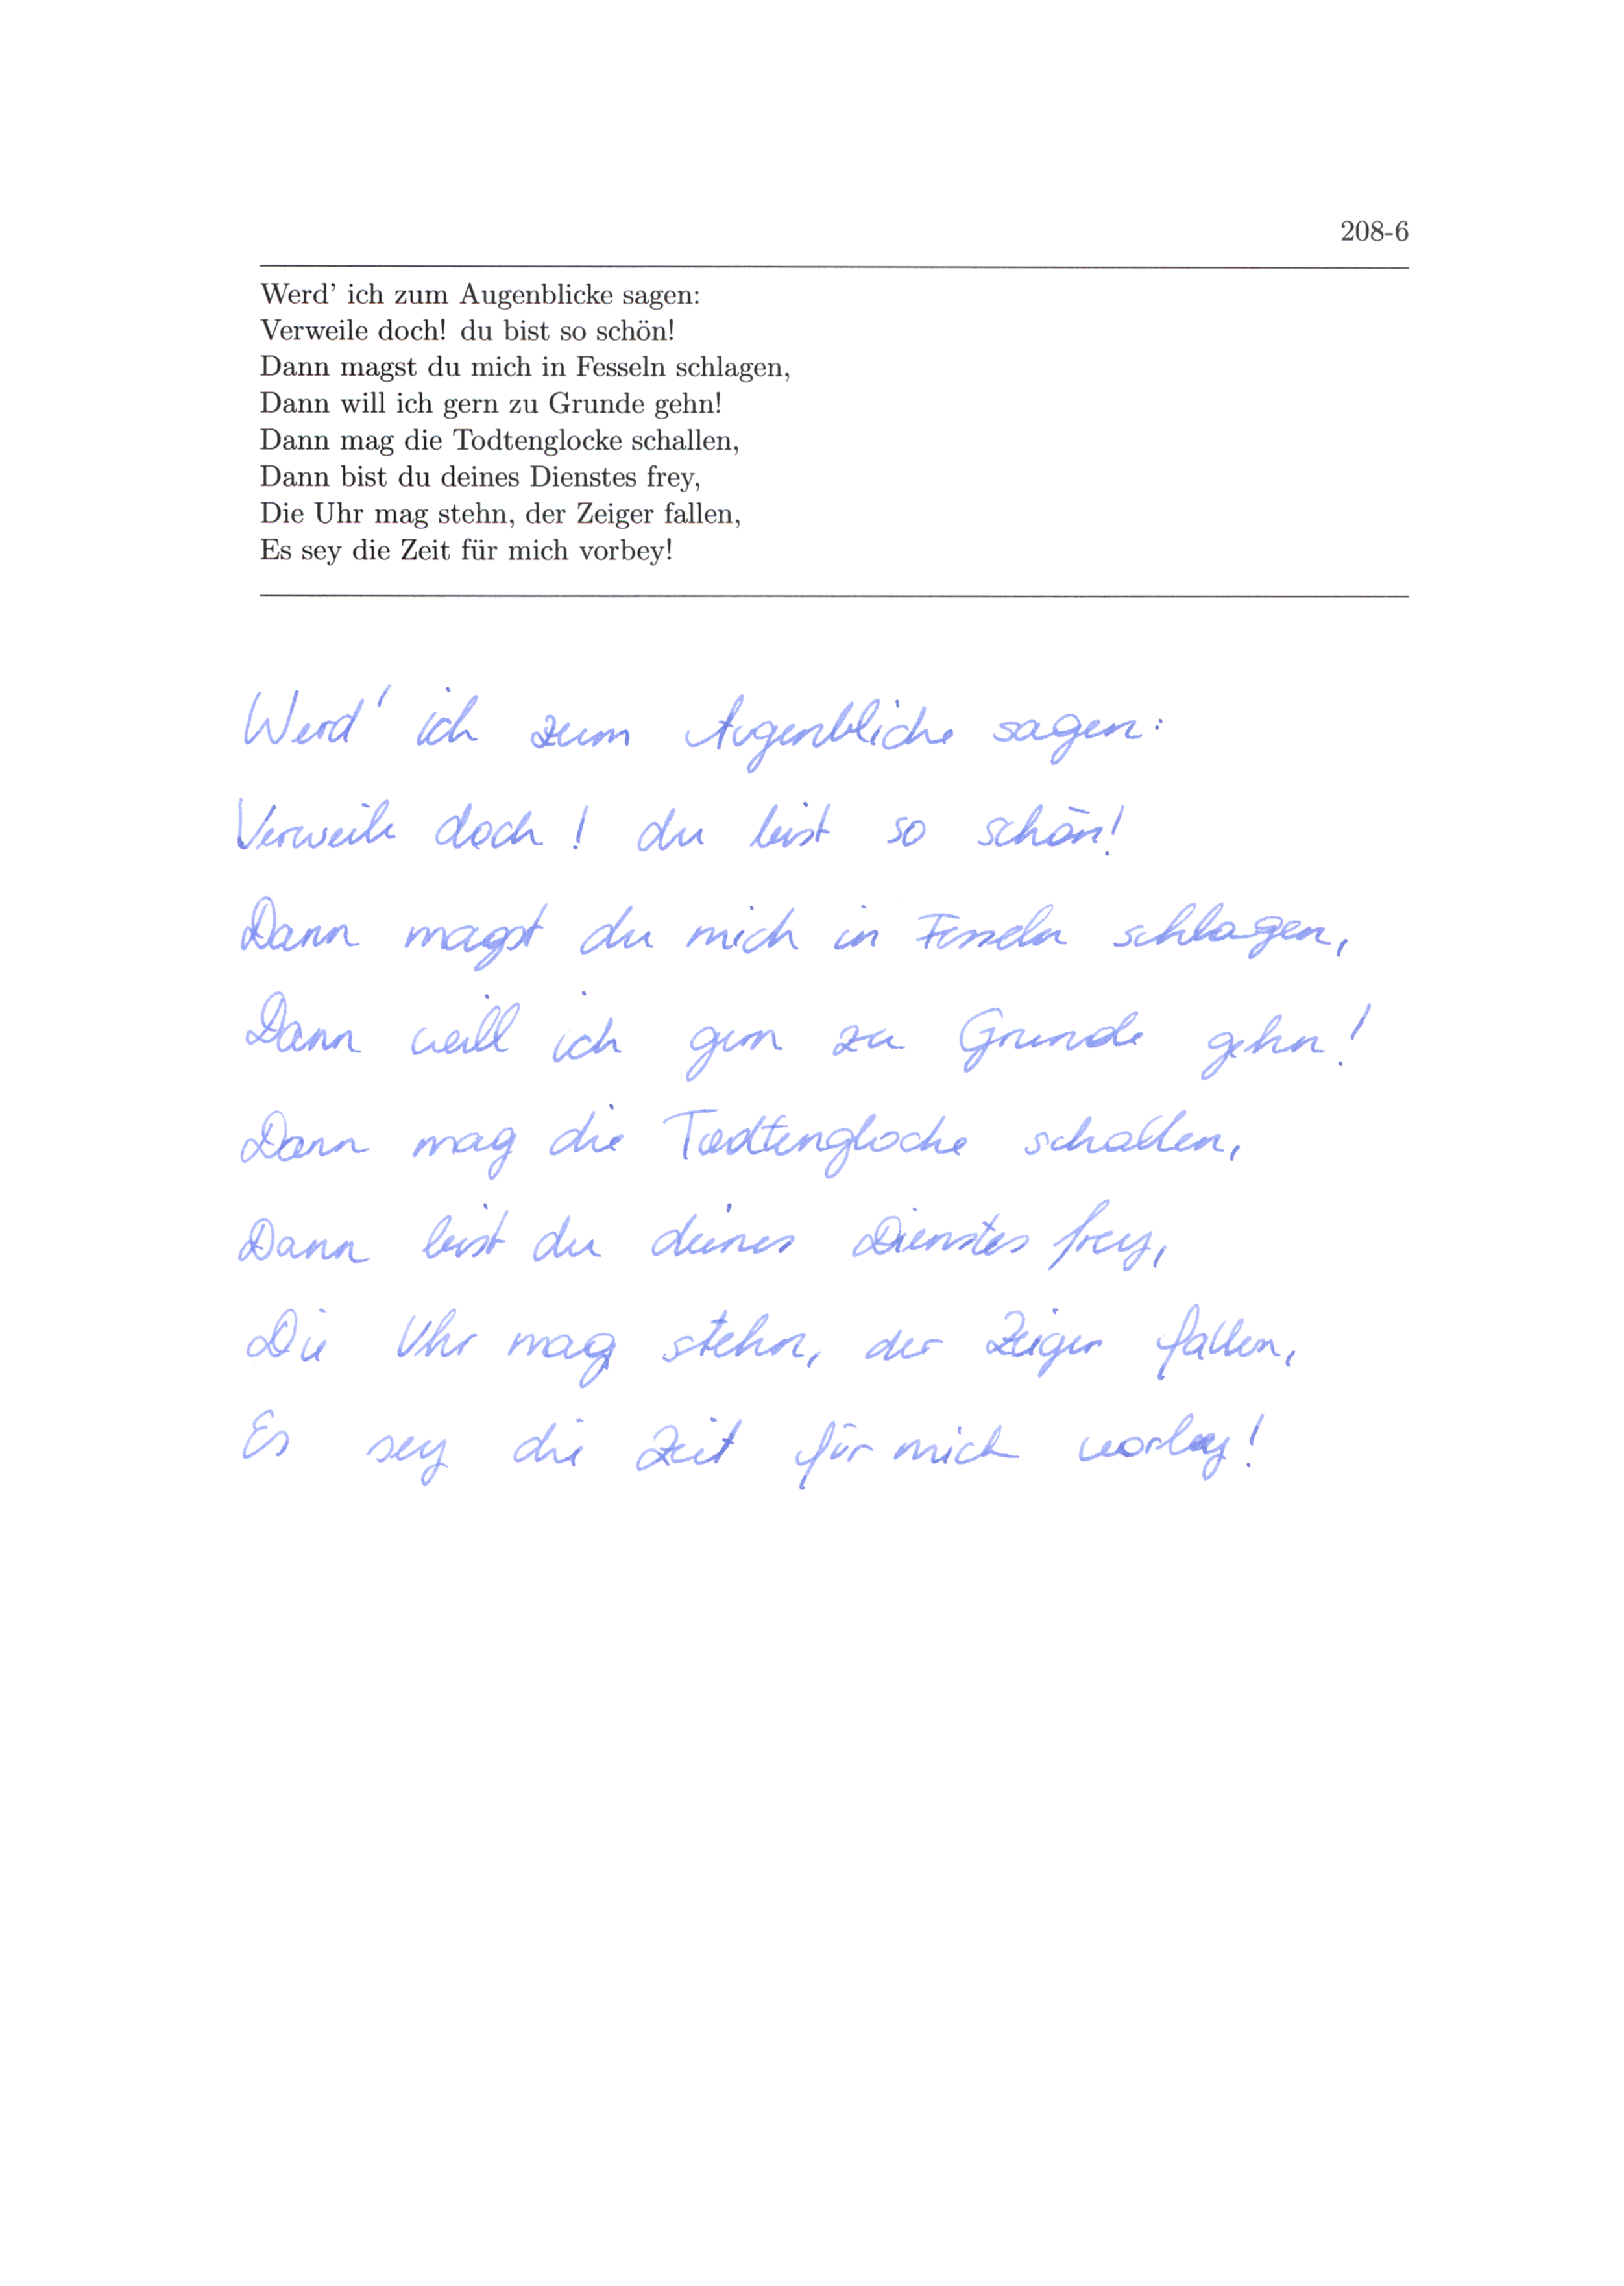 208-6
Werd' ich zum Augenblicke sagen:
Verweile doch! du bist so schön!
Dann magst du mich in Fesseln schlagen,
Dann will ich gern zu Grunde gehn!
Dann mag die Todtenglocke schallen,
Dann bist du deines Dienstes frey,
Die Uhr mag stehn, der Zeiger fallen,
Es sey die Zeit für mich vorbey!
Werd' ich zum Augenblicke sagen:
Verweile doch! du bist so schön!
Dann magst du mich in Fesseln schlagen,
Dann will ich gern zu Grunde gehn!
Dann mag die Todtenglocke schallen,
Dann bist du deines Dienstes frey,
Die Uhr mag stehn, der Zeiger fallen,
Es sey die Zeit für mich vorbey!